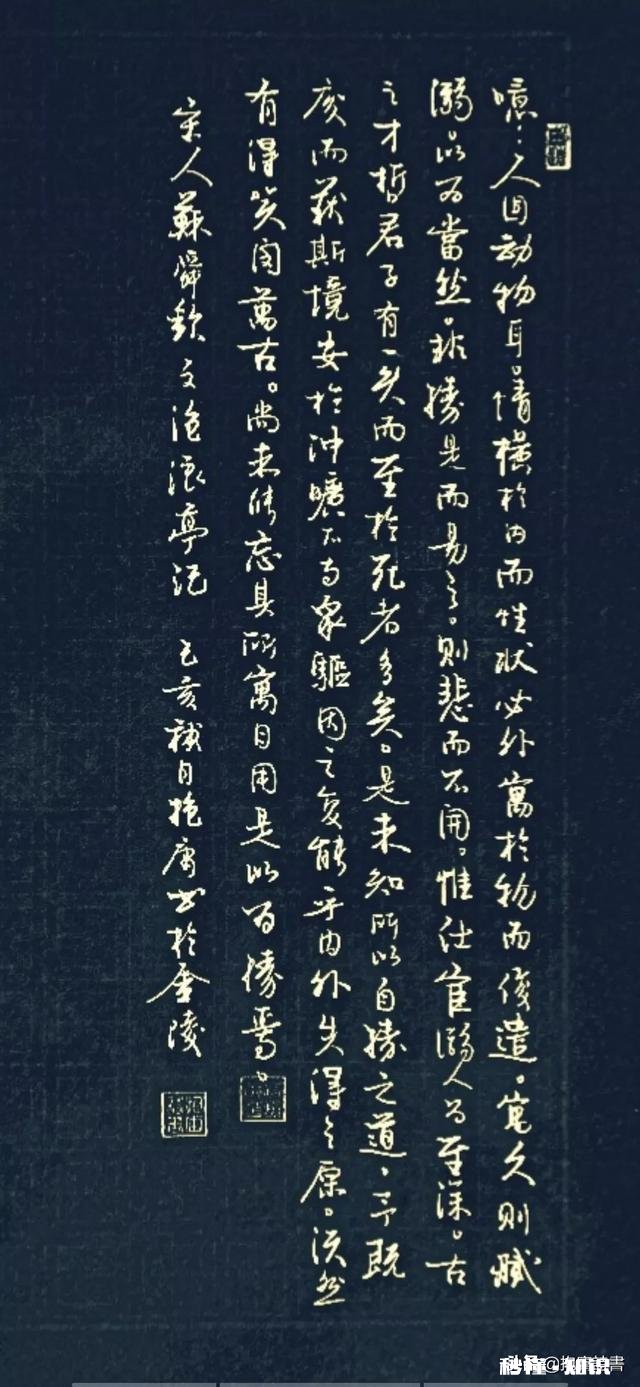 噫！人固动物耳。情横於内而性状必外寓於物而後遣。寓久则
溺。以为當然。非勝是而易之。则悲而不開。惟仕宦溺人为至深。古
之才哲君子有一失而至於死者多矣。是未知所以自勝之道、予既
废而获斯境安於冲曠不与衆驅因之复能乎内外失得之原。沃然
有得笑闵萬古。尚未能忘其所寓目用是以为勝焉。
宋人蘇舜欽文滄浪亭记 己亥 月抱庸书於金陵
秒懂·知识